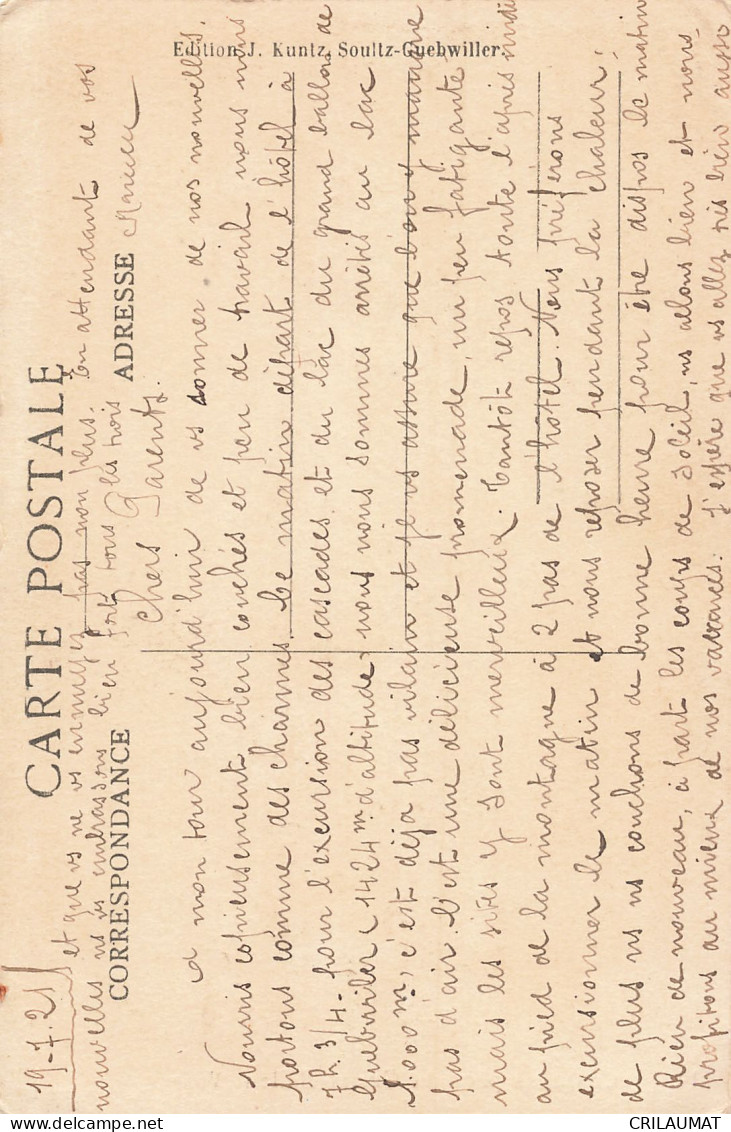 Edition J. Kuntz, Soultz-Guebwiller.
CARTE POSTALE
CORRESPONDANCE
ADRESSE
19-7.21
Chers Parents.
A mon tour aujourd'hui de vs donner de nos nouvelles.
Nourris copieusement, bien couchés et peu de travail nous nous
portons comme des charmes. Ce matin départ de l'hôtel à
7h.3/4 pour l'excursion des cascades et du lac du grand ballon de
Guebwiller (1424m d'altitude) nous nous sommes arrêtés au lac
1.000m, c'est déjà pas vilain et je vs assure que l'on y manque
pas d'air. C'est une délicieuse promenade, un peu fatigante
mais les sites y sont merveilleux. Tantôt repos toute l'après midi
au pied de la montagne à 2 pas de l'hôtel. Nous préférons
excursionner le matin et nous reposer pendant la chaleur,
de plus ns ns couchons de bonne heure pour être dispos le matin
Rien de nouveau, à part les coups de soleil, ns allons bien et nous
profitons au mieux de nos vacances. J'espère que vs allez très bien aussi
et que vs ne vs ennuyez pas non plus. En attendant de vos
nouvelles ns vs embrassons bien fort tous les trois
Marcel
CRILAUMAT